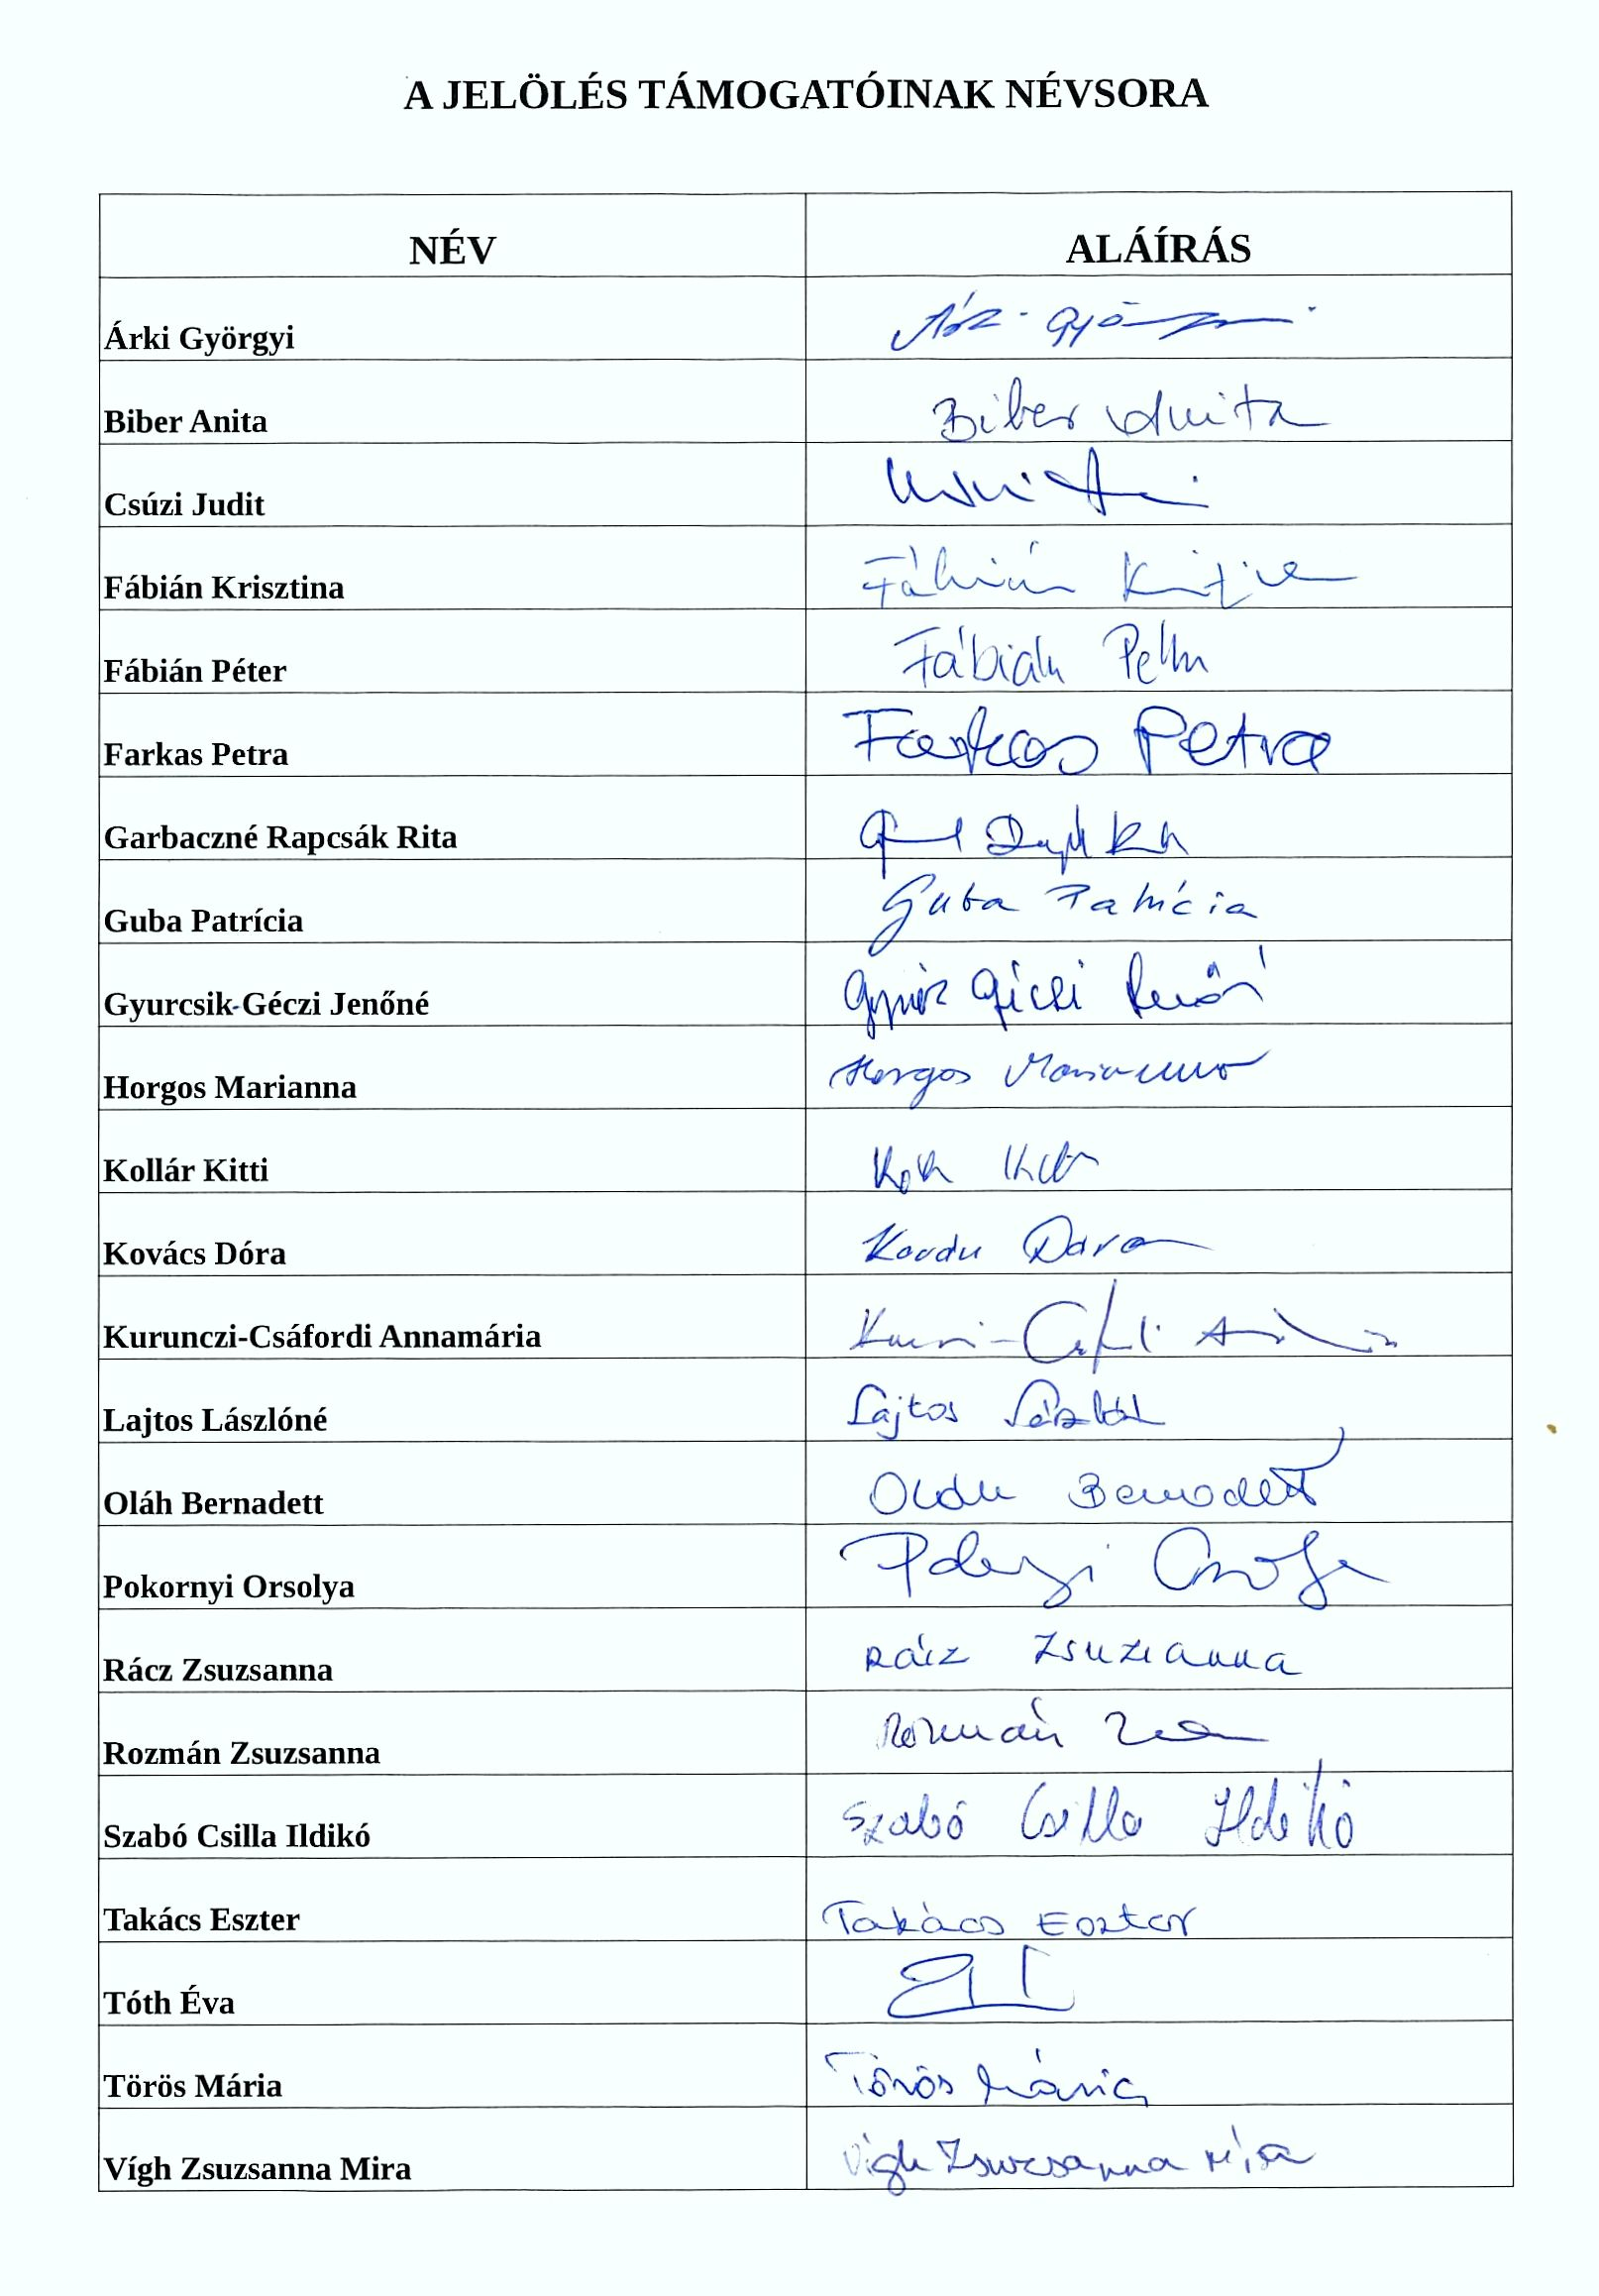 A JELÖLÉS TÁMOGATÓINAK NÉVSORA
NÉV ALÁÍRÁS
Árki Györgyi
Biber Anita Biber Anita
Csúzi Judit
Fábián Krisztina Fábián
Fábián Péter Fábián
Farkas Petra Farkas Petra
Garbaczné Rapcsák Rita
Guba Patrícia Guba Patrícia
Gyurcsik-Géczi Jenőné Géczi
Horgos Marianna Horgos Marianna
Kollár Kitti
Kovács Dóra Dóra
Kurunczi-Csáfordi Annamária
Lajtos Lászlóné Lajtos
Oláh Bernadett Oláh Bernadett
Pokornyi Orsolya
Rácz Zsuzsanna Rácz Zsuzsanna
Rozmán Zsuzsanna Rozmán
Szabó Csilla Ildikó Szabó Csilla Ildikó
Takács Eszter Takács Eszter
Tóth Éva
Törös Mária Törös Mária
Vígh Zsuzsanna Mira Vígh Zsuzsanna Mira